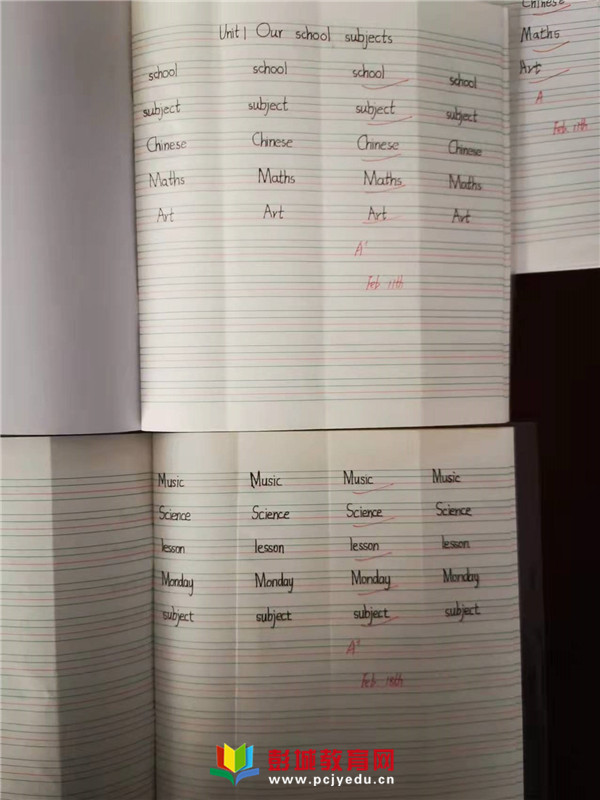 Unit 1 Our school subjects
school school school school
subject subject subject subject
Chinese Chinese Chinese Chinese
Maths Maths Maths Maths
Art Art Art Art
A⁺
Feb. 11th
Chinese
Maths
Art
A
Feb. 11th
Music Music Music Music
Science Science Science Science
lesson lesson lesson lesson
Monday Monday Monday Monday
subject subject subject subject
A⁺
Feb. 18th
彭城教育网
www.pcjyedu.cn